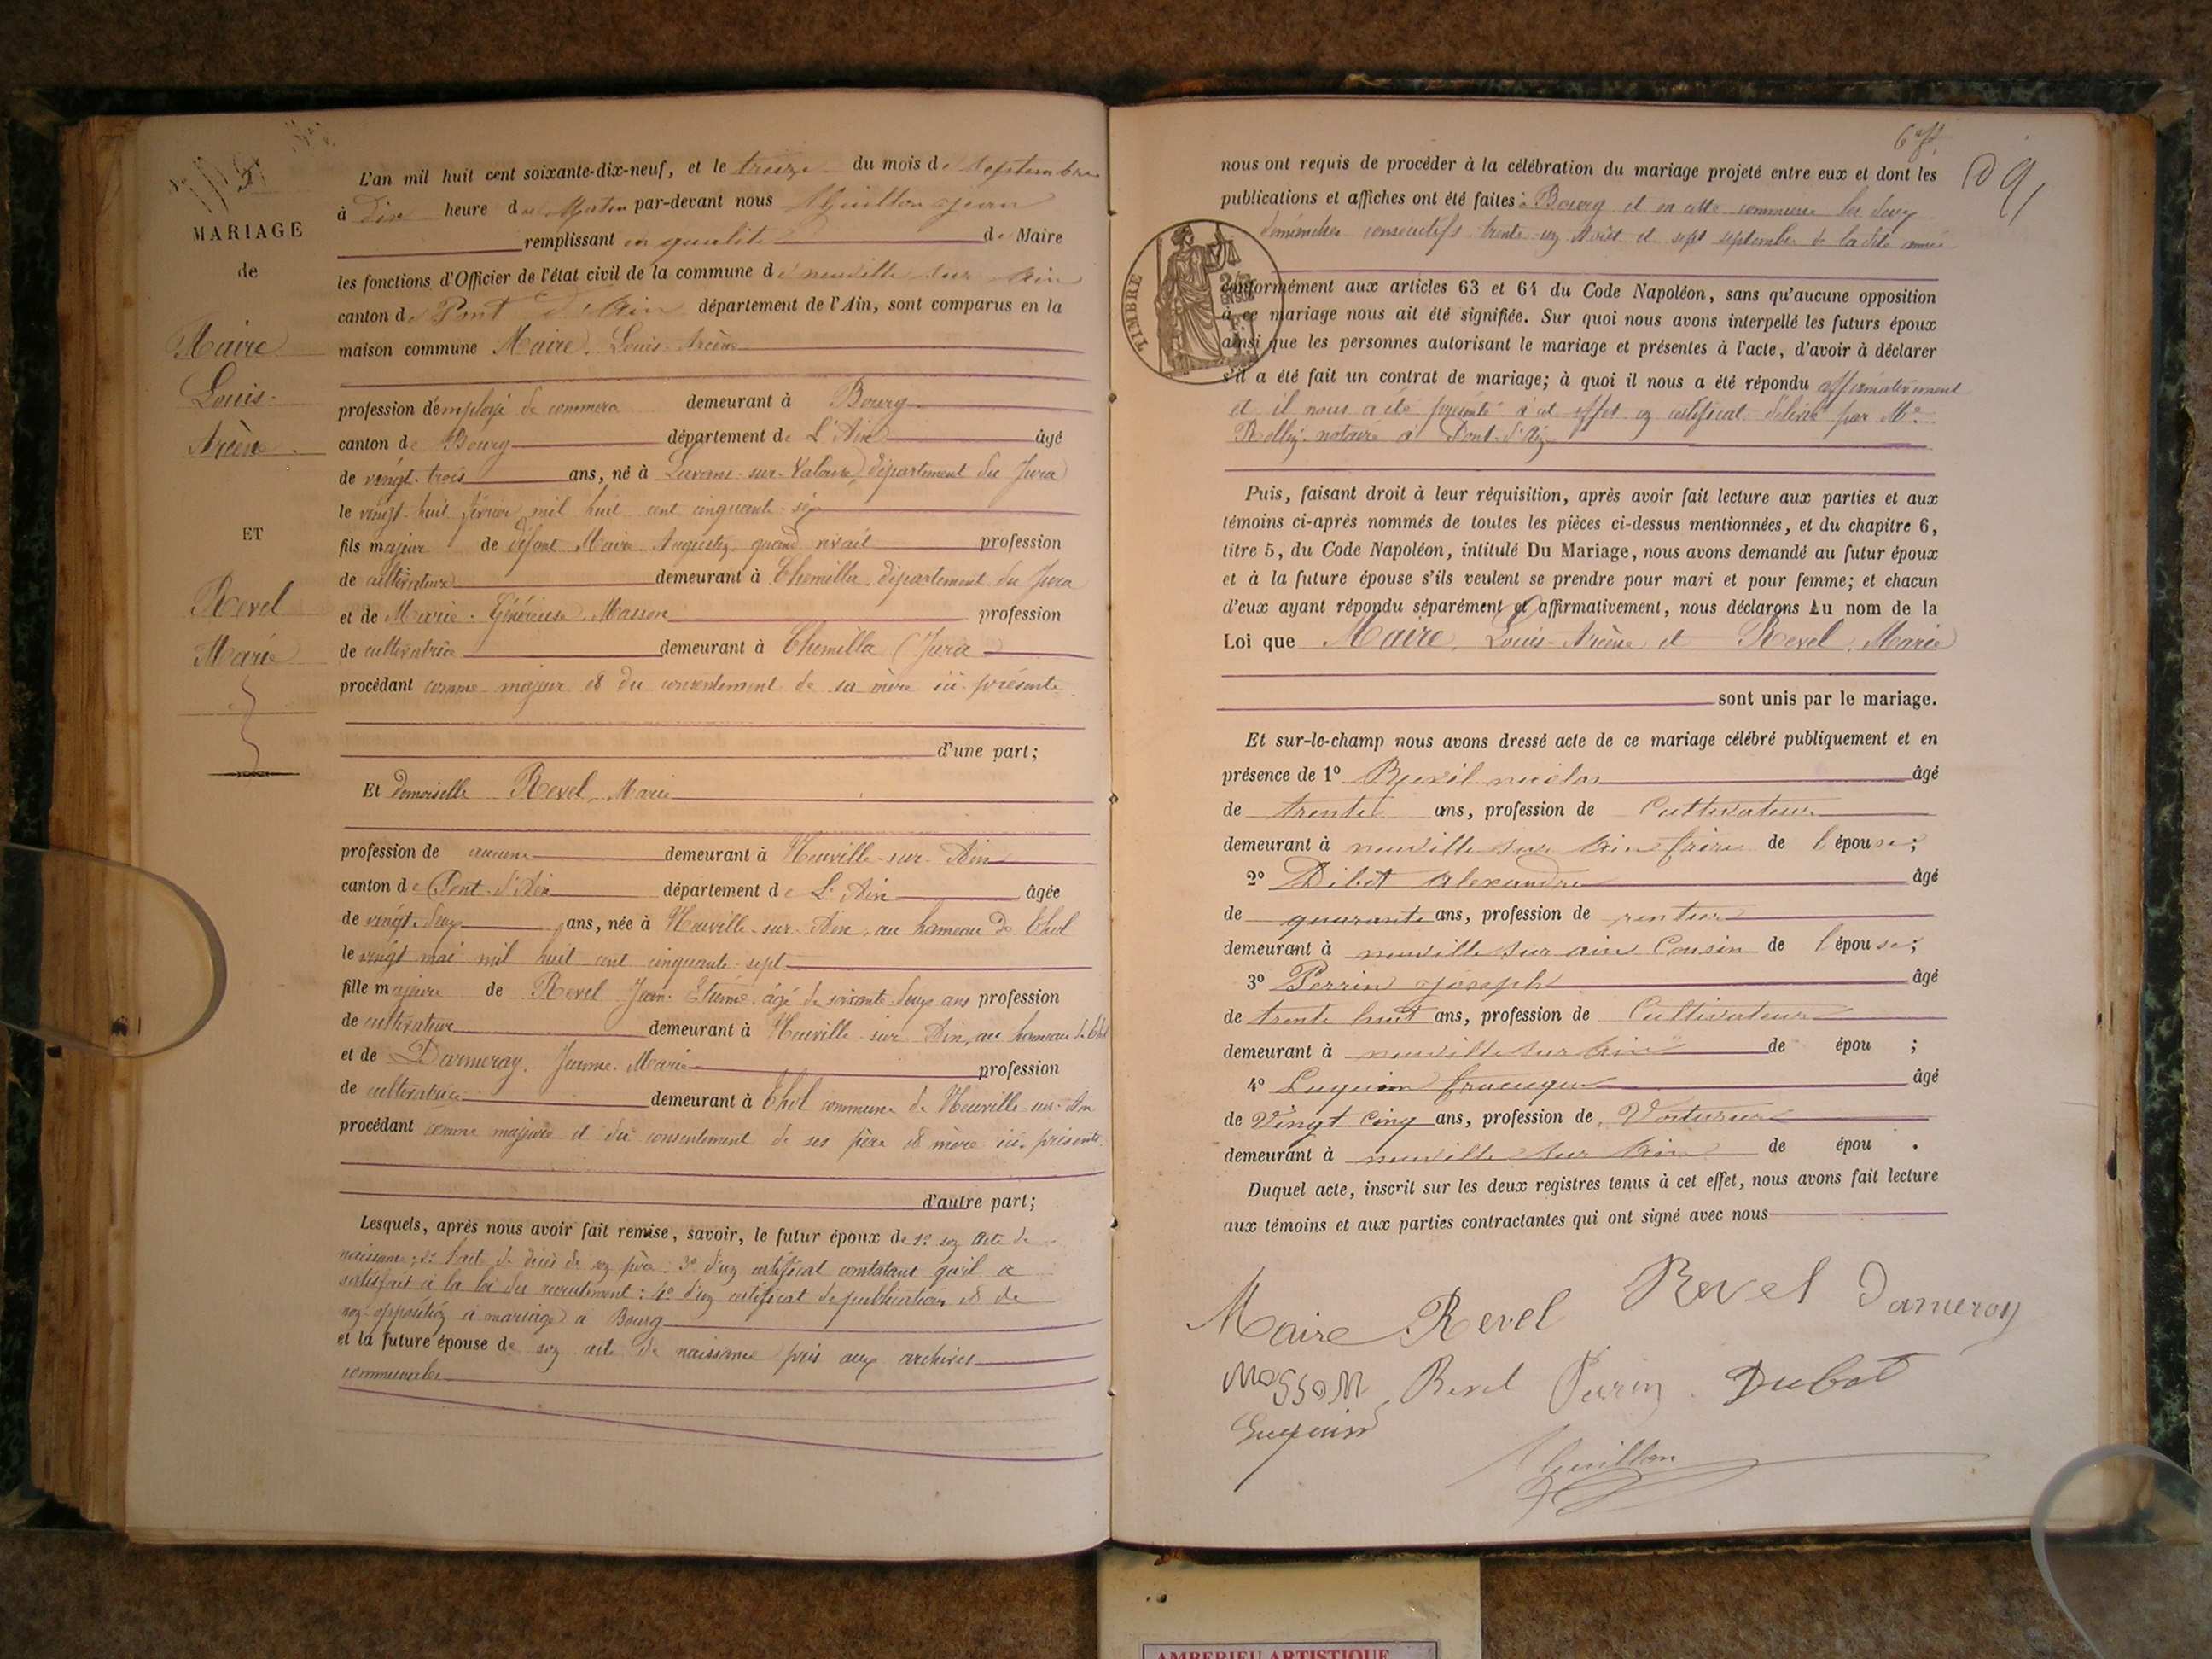 MARIAGE
de
Maire
Louis-
Arcène.
ET
Revel
Marie
L'an mil huit cent soixante-dix-neuf, et le treize du mois de septembre
à dix heure du Matin par-devant nous Guillon Jean
remplissant en qualité de Maire
les fonctions d'Officier de l'état civil de la commune de neuville sur ain
canton de Pont d'Ain département de l'Ain, sont comparus en la
maison commune Maire, Louis-Arcène
profession d'employé de commerce demeurant à Bourg
canton de Bourg département de L'Ain âgé
de vingt-trois ans, né à sur-Valouse, département du Jura
le vingt-huit février mil huit cent cinquante-six
fils majeur de défunt Maire Augustin quand vivait profession
de cultivateur demeurant à Chemilla, département du Jura
et de Marie-Généreuse Masson profession
de cultivatrice demeurant à Chemilla (Jura)
procédant comme majeur et du consentement de sa mère ici-présente
d'une part;
Et demoiselle Revel, Marie
profession de aucune demeurant à Neuville-sur-Ain
canton de Pont-d'Ain département de L'Ain âgée
de vingt-deux ans, née à Neuville-sur-Ain, au hameau de Thol
le vingt mai mil huit cent cinquante-sept
fille majeure de Revel Jean-Etienne, âgé de soixante-deux ans profession
de cultivateur demeurant à Neuville-sur-Ain, au hameau de Thol
et de Dameray, Jeanne-Marie profession
de cultivatrice demeurant à Thol commune de Neuville-sur-Ain
procédant comme majeure et du consentement de ses père et mère ici-présents
d'autre part;
Lesquels, après nous avoir fait remise, savoir, le futur époux de 1º son acte de
naissance; 2º l'acte de décès de son père 3º d'un certificat constatant qu'il a
satisfait à la loi du recrutement: 4º d'un certificat de publication et de
non-opposition à mariage à Bourg
et la future épouse de son acte de naissance pris aux archives
communales
nous ont requis de procéder à la célébration du mariage projeté entre eux et dont les
publications et affiches ont été faites à Bourg et en cette commune les deux
dimanches consécutifs trente-un Août et sept septembre de la dite année
TIMBRE
conformément aux articles 63 et 64 du Code Napoléon, sans qu'aucune opposition
à ce mariage nous ait été signifiée. Sur quoi nous avons interpellé les futurs époux
ainsi que les personnes autorisant le mariage et présentes à l'acte, d'avoir à déclarer
s'il a été fait un contrat de mariage; à quoi il nous a été répondu affirmativement
et il nous a été présenté à cet effet un certificat délivré par Me
notaire à Pont-d'Ain
Puis, faisant droit à leur réquisition, après avoir fait lecture aux parties et aux
témoins ci-après nommés de toutes les pièces ci-dessus mentionnées, et du chapitre 6,
titre 5, du Code Napoléon, intitulé Du Mariage, nous avons demandé au futur époux
et à la future épouse s'ils veulent se prendre pour mari et pour femme; et chacun
d'eux ayant répondu séparément et affirmativement, nous déclarons Au nom de la
Loi que Maire, Louis-Arcène et Revel, Marie
sont unis par le mariage.
Et sur-le-champ nous avons dressé acte de ce mariage célébré publiquement et en
présence de 1º âgé
de trente ans, profession de Cultivateur
demeurant à neuville sur ain frère de l'épouse;
2º Alexandre âgé
de quarante ans, profession de rentier
demeurant à neuville sur ain Cousin de l'épouse;
3º Perrin Joseph âgé
de trente huit ans, profession de Cultivateur
demeurant à neuville sur ain de épou ;
4º âgé
de Vingt Cinq ans, profession de Voiturier
demeurant à neuville sur ain de épou .
Duquel acte, inscrit sur les deux registres tenus à cet effet, nous avons fait lecture
aux témoins et aux parties contractantes qui ont signé avec nous
Maire Revel Revel Dameray
Masson Revel Perrin Dubot
Guillon
AMBERIEU ARTISTIQUE